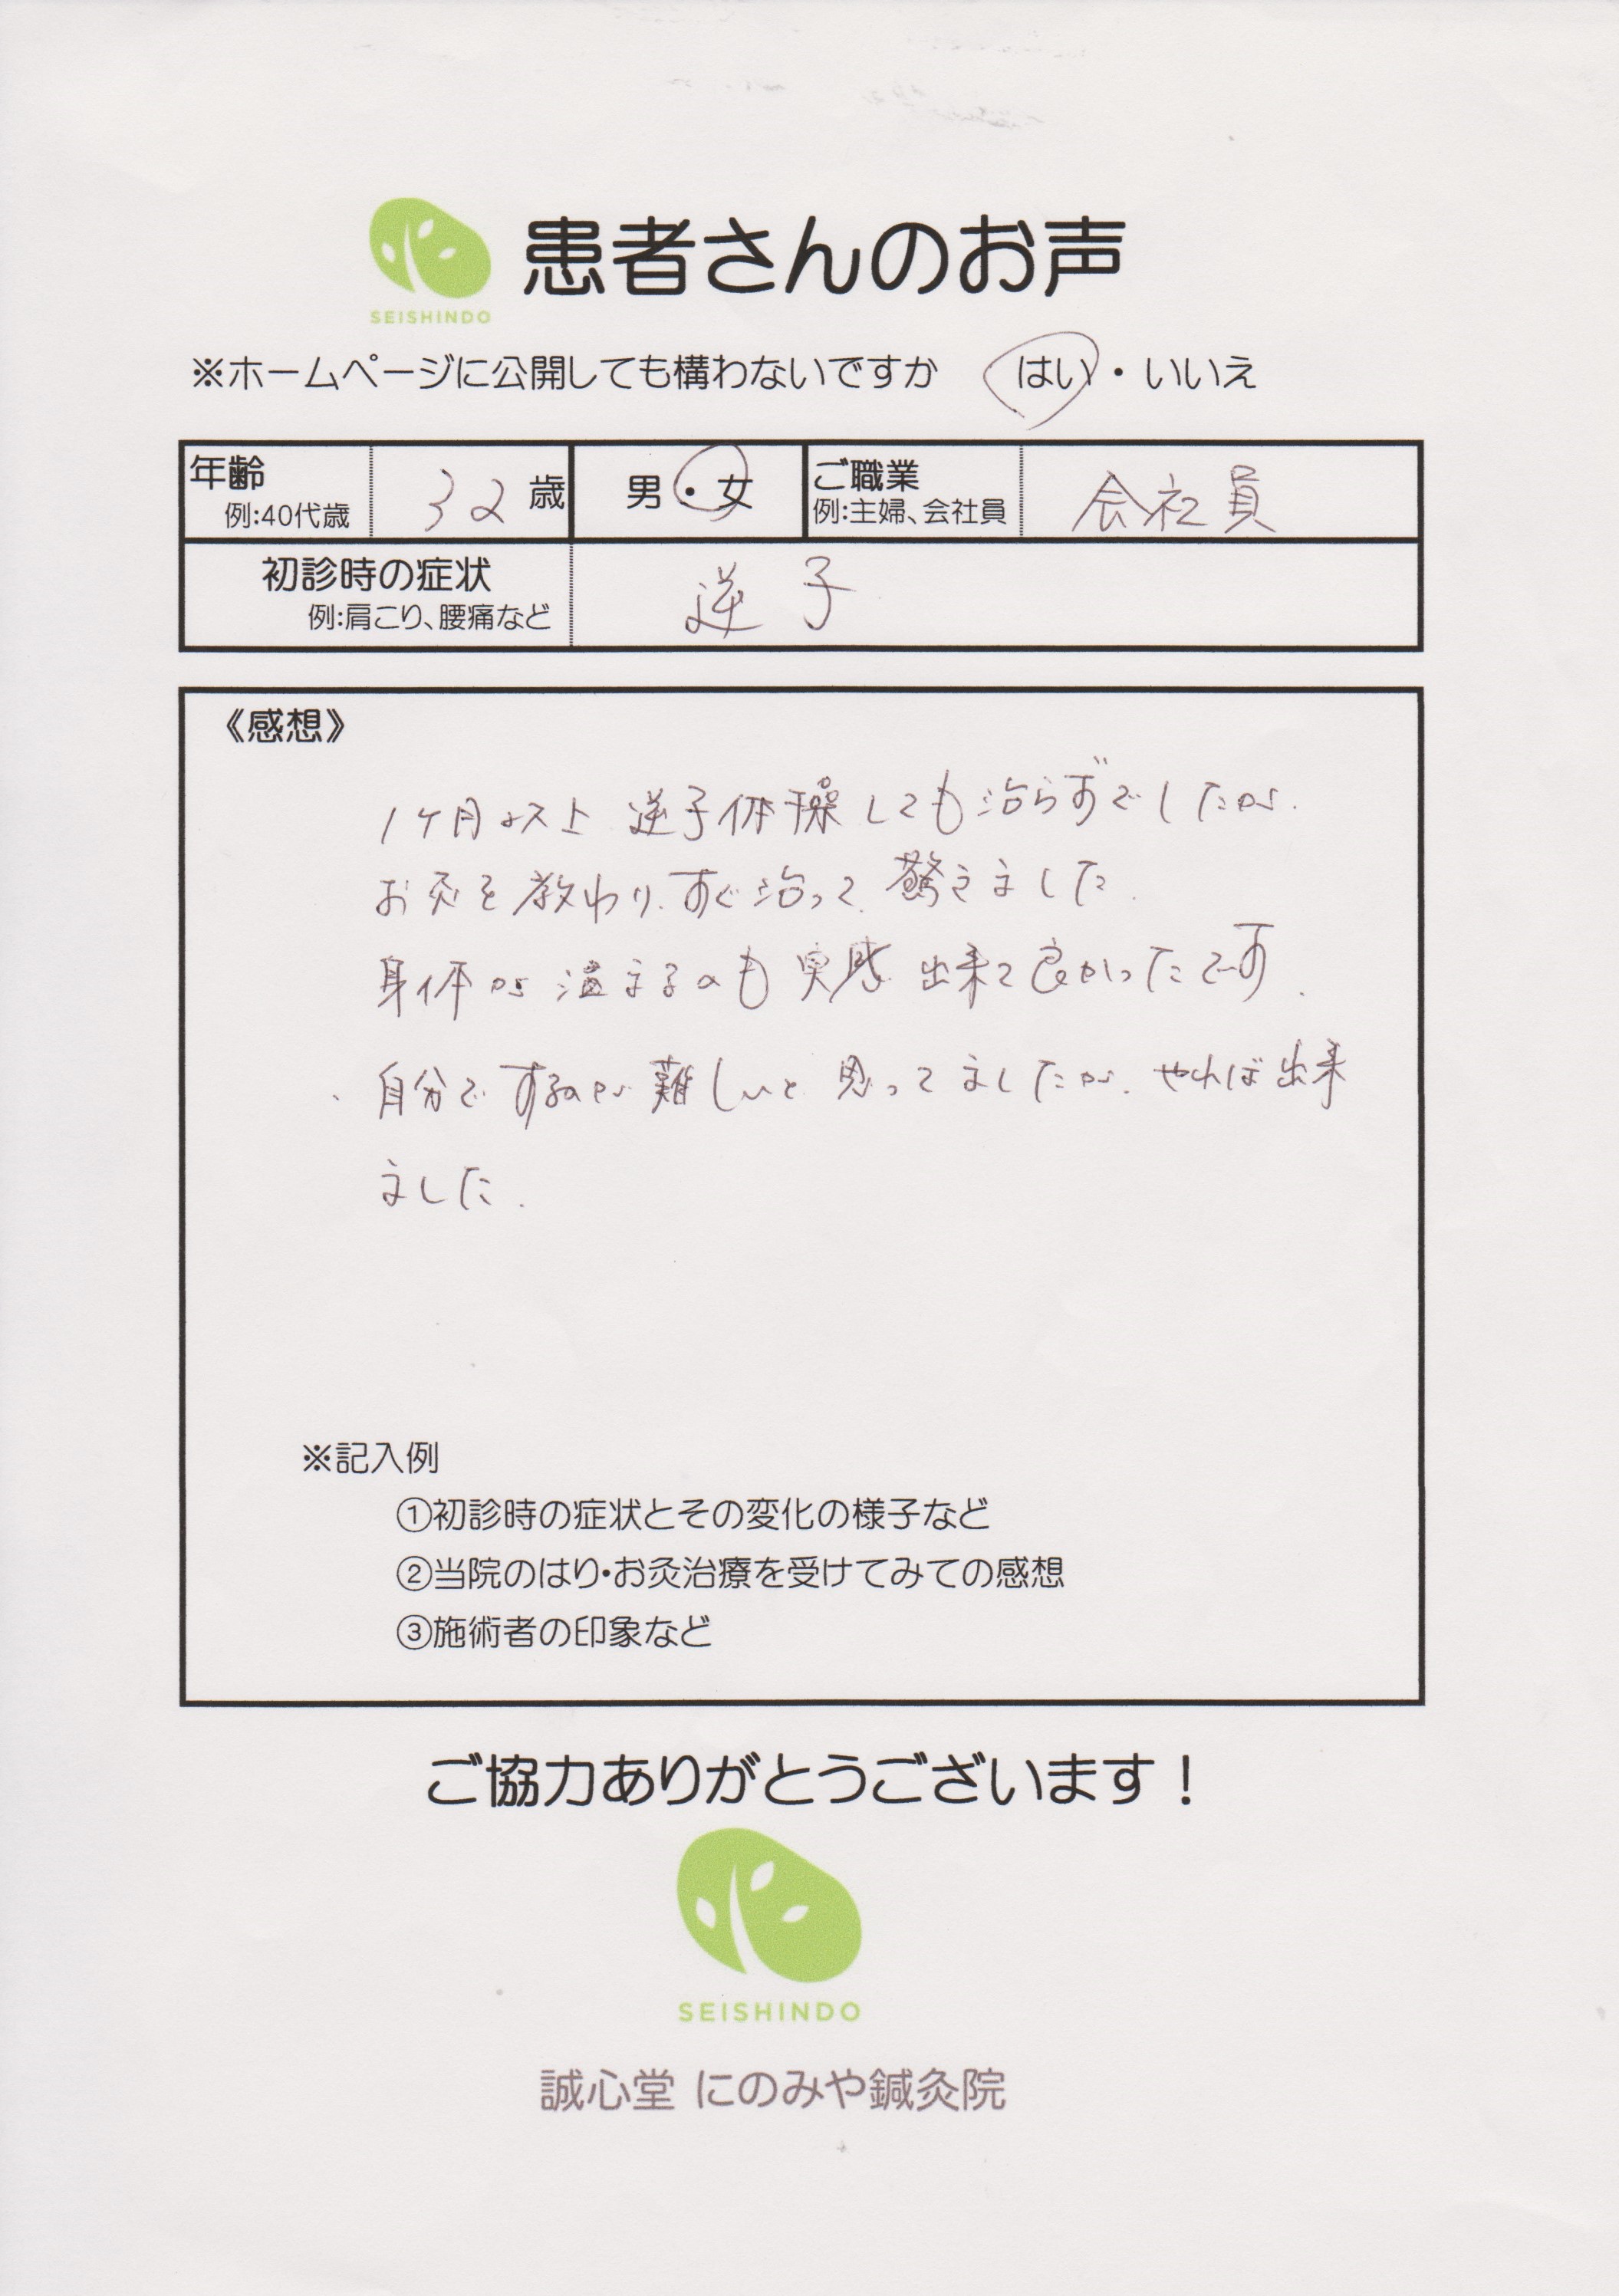 SEISHINDO
患者さんのお声
※ホームページに公開しても構わないですか はい・いいえ
年齢 例:40代歳 32歳 男・女 ご職業 例:主婦、会社員 会社員
初診時の症状 例:肩こり、腰痛など 逆子
《感想》
1ヶ月以上 逆子体操しても治らずでしたが、
お灸を教わり、すぐ治って、驚きました。
身体が温まるのも実感出来て良かったです。
、自分でするのが難しいと思ってましたが、やれば出来
ました。
※記入例
①初診時の症状とその変化の様子など
②当院のはり・お灸治療を受けてみての感想
③施術者の印象など
ご協力ありがとうございます！
SEISHINDO
誠心堂 にのみや鍼灸院